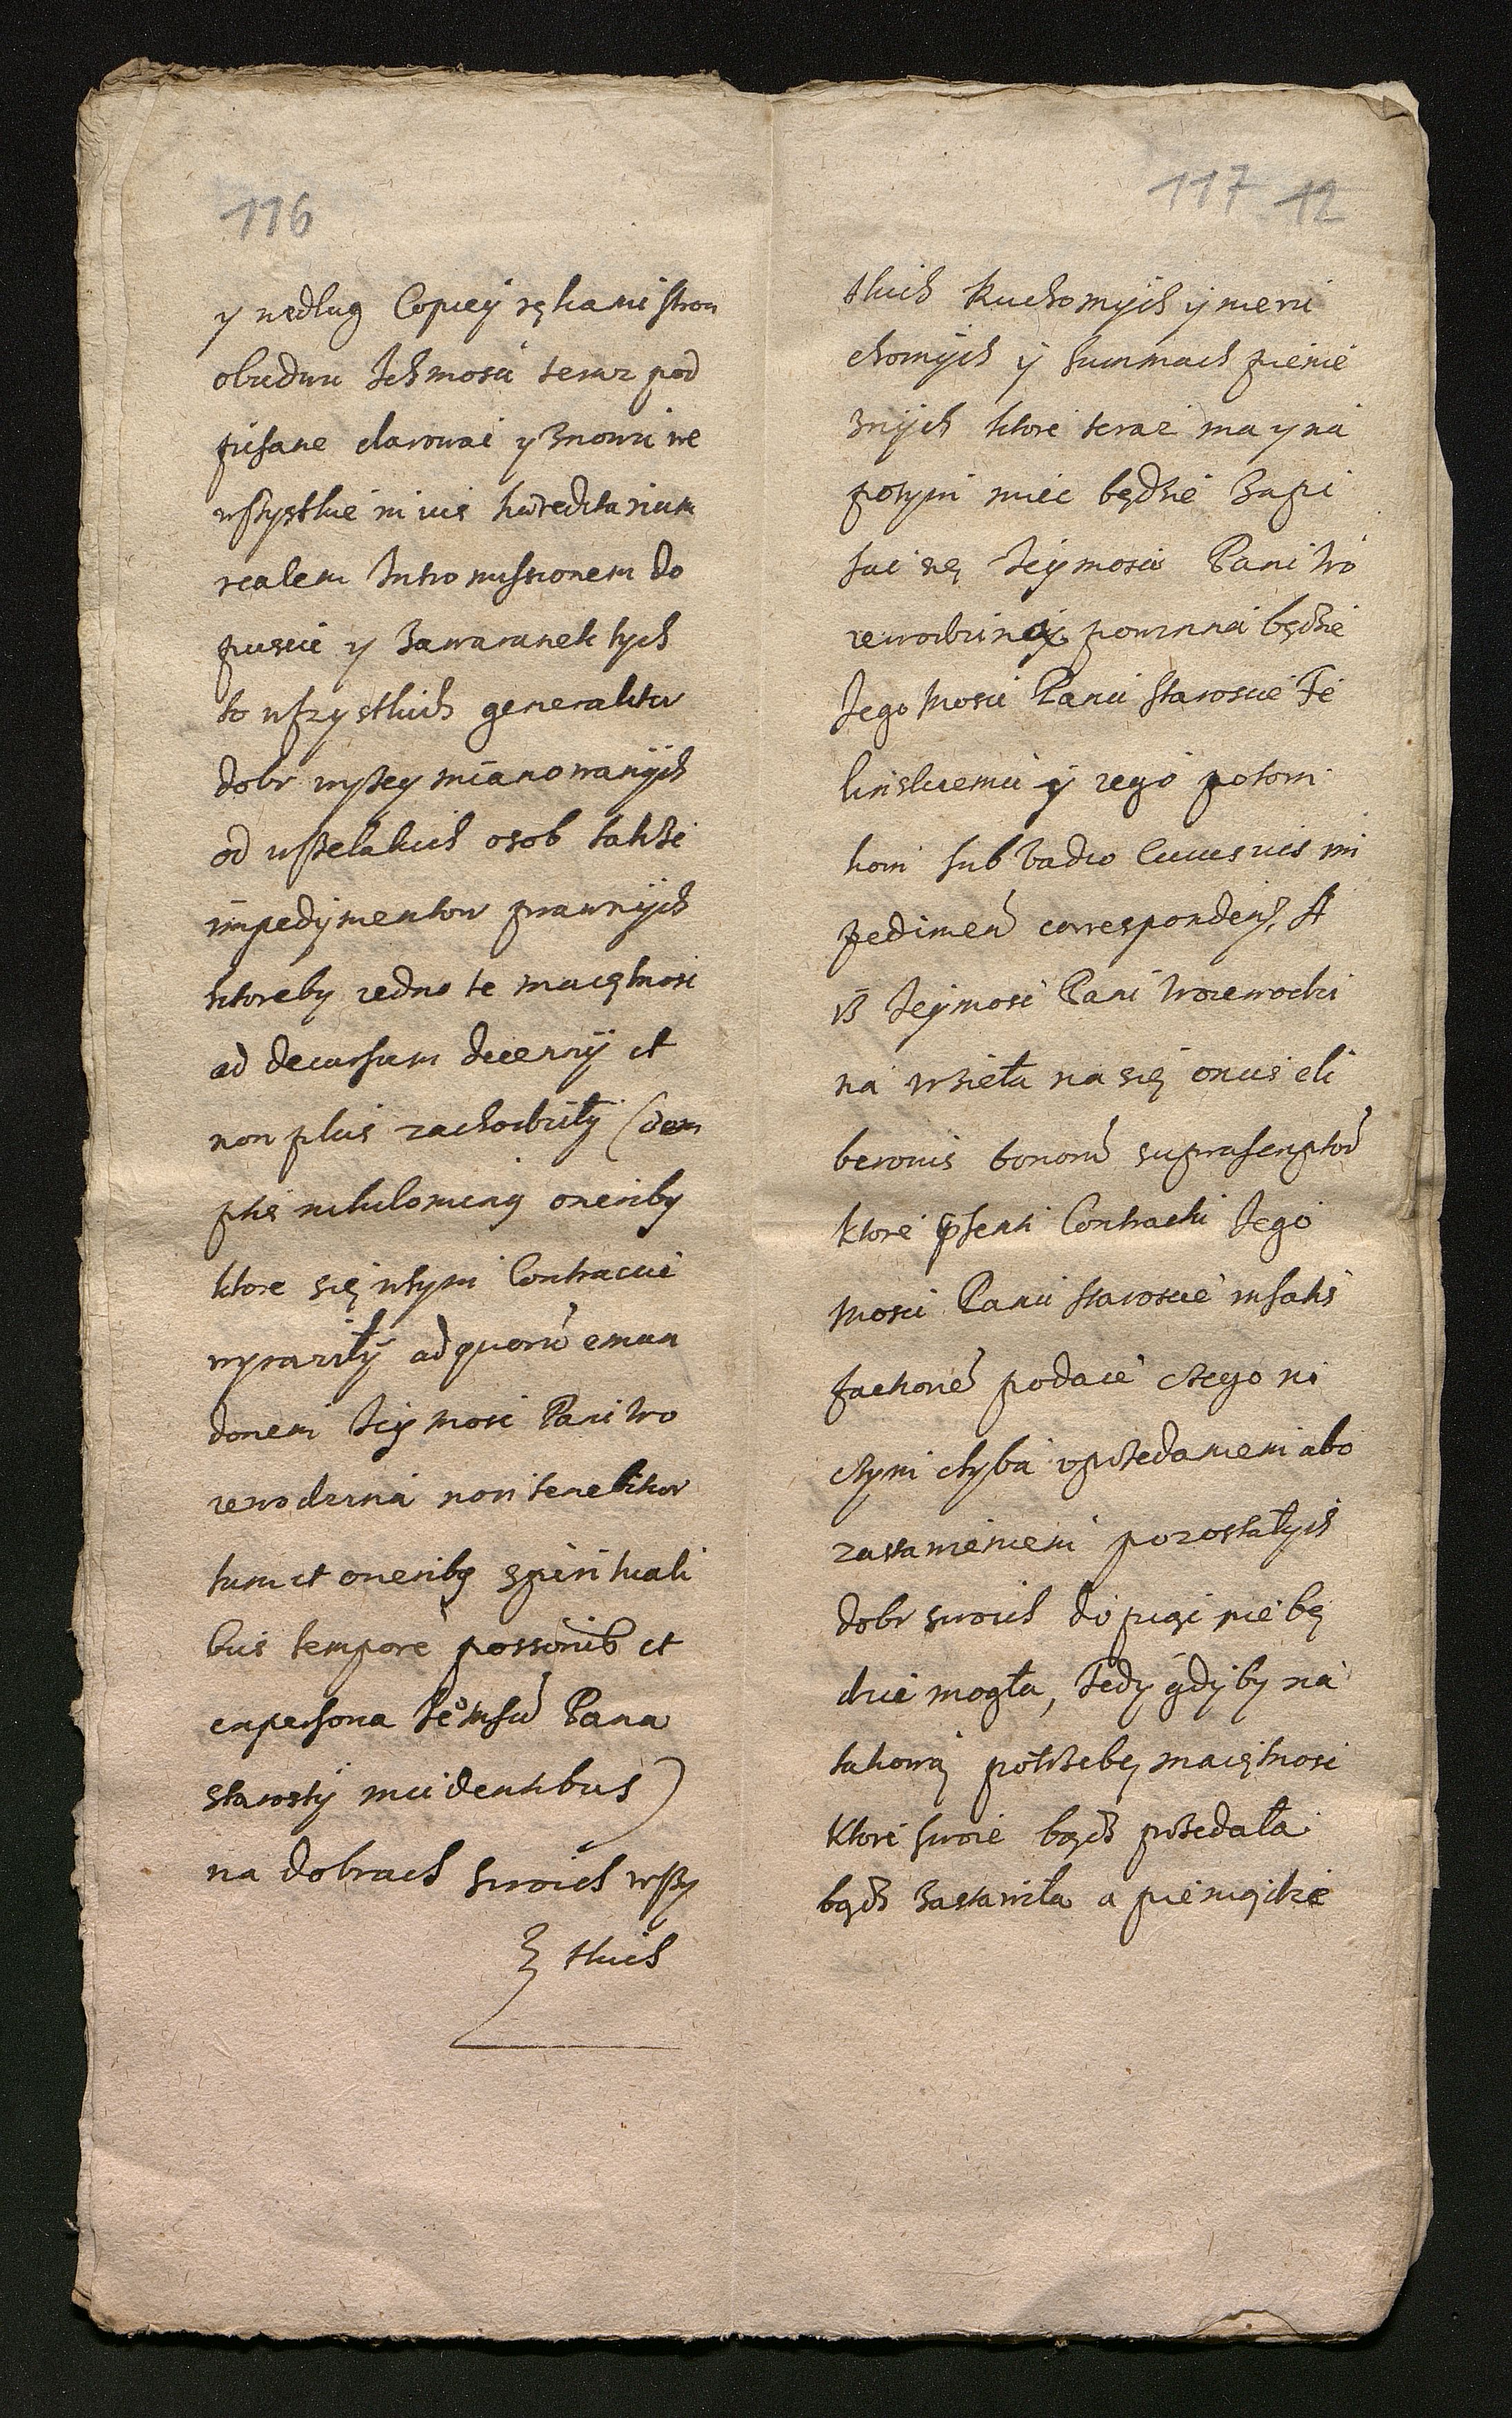 116
y wedlug Copiey rękami stron
obudwu Ichmosci teraz pod
pisane darowac y znowu we
wszystkie in ius hæreditarium
realem Intromissionem do
puscic y zawarunek tych
to wszystkich generaliter
dobr wyszey mianowanych
od wszelakich osob takze
impedymentow prawnych
ktoreby iedno te maiętnosc
ad decursum decenny et
non plus zachodziły (dem
ptis nihilominus oneribus
ktore się wtym Contracie
wyraziły ad quorū eman
donem Iey Mosc Pani Wo
iewodzina non tenebitur
tum et oneribus spirituali
bus tempore possōnis et
ex persona Pana
Starosty incidentibus)
na dobrach swoich wszy
stkich
117 12
stkich Ruchomych y nieru
chomych y summach pienię
znych ktore teraz ma y na
potym miec będzie zapi
sac się Ieymosci Pani Wo
iewodzina powinna będzie
Iego Mosci Panu Staroscie Fe
linskiemu y iego potom
kom sub vadio cuiusvis im
pedimen correspondens. A
isz Ieymosc Pani Woiewodzi
na wzieła na się onus eli
beronis bonorū suprascriptorū
ktore psenti Contractu Iego
Mosci Panu Staroscie in satis
factionē podaie czego ni
czym chyba vprzedaniem abo
zastawieniem pozostałych
dobr swoich dopiąc nie bę
dzie mogła, Tedy gdyby na
takową potrzebę maiętnosc
Ktore swoie bądz przedała
bądz zastawiła a pieniądze